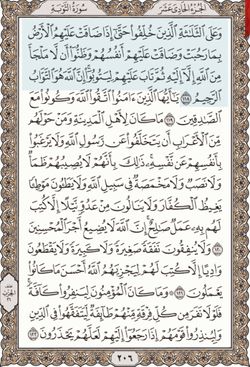 الجزء الحادي عشر
سورة التوبة
وَعَلَى ٱلثَّلَٰثَةِ ٱلَّذِينَ خُلِّفُوا۟ حَتَّىٰٓ إِذَا ضَاقَتْ عَلَيْهِمُ ٱلْأَرْضُ
بِمَا رَحُبَتْ وَضَاقَتْ عَلَيْهِمْ أَنفُسُهُمْ وَظَنُّوٓا۟ أَن لَّا مَلْجَأَ
مِنَ ٱللَّهِ إِلَّآ إِلَيْهِ ثُمَّ تَابَ عَلَيْهِمْ لِيَتُوبُوٓا۟ إِنَّ ٱللَّهَ هُوَ ٱلتَّوَّابُ
ٱلرَّحِيمُ ١١٨ يَٰٓأَيُّهَا ٱلَّذِينَ ءَامَنُوا۟ ٱتَّقُوا۟ ٱللَّهَ وَكُونُوا۟ مَعَ
ٱلصَّٰدِقِينَ ١١٩ مَا كَانَ لِأَهْلِ ٱلْمَدِينَةِ وَمَنْ حَوْلَهُم
مِّنَ ٱلْأَعْرَابِ أَن يَتَخَلَّفُوا۟ عَن رَّسُولِ ٱللَّهِ وَلَا يَرْغَبُوا۟
بِأَنفُسِهِمْ عَن نَّفْسِهِۦ ذَٰلِكَ بِأَنَّهُمْ لَا يُصِيبُهُمْ ظَمَأٌ
وَلَا نَصَبٌ وَلَا مَخْمَصَةٌ فِى سَبِيلِ ٱللَّهِ وَلَا يَطَـُٔونَ مَوْطِئًا
يَغِيظُ ٱلْكُفَّارَ وَلَا يَنَالُونَ مِنْ عَدُوٍّ نَّيْلًا إِلَّا كُتِبَ
لَهُم بِهِۦ عَمَلٌ صَٰلِحٌ إِنَّ ٱللَّهَ لَا يُضِيعُ أَجْرَ ٱلْمُحْسِنِينَ
١٢٠ وَلَا يُنفِقُونَ نَفَقَةً صَغِيرَةً وَلَا كَبِيرَةً وَلَا يَقْطَعُونَ
وَادِيًا إِلَّا كُتِبَ لَهُمْ لِيَجْزِيَهُمُ ٱللَّهُ أَحْسَنَ مَا كَانُوا۟
يَعْمَلُونَ ١٢١ وَمَا كَانَ ٱلْمُؤْمِنُونَ لِيَنفِرُوا۟ كَآفَّةً
فَلَوْلَا نَفَرَ مِن كُلِّ فِرْقَةٍ مِّنْهُمْ طَآئِفَةٌ لِّيَتَفَقَّهُوا۟ فِى ٱلدِّينِ
وَلِيُنذِرُوا۟ قَوْمَهُمْ إِذَا رَجَعُوٓا۟ إِلَيْهِمْ لَعَلَّهُمْ يَحْذَرُونَ ١٢٢
٢٠٦